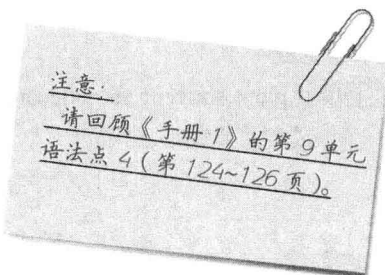 注意:
请回顾《手册1》的第9单元
语法点4(第124~126页)。